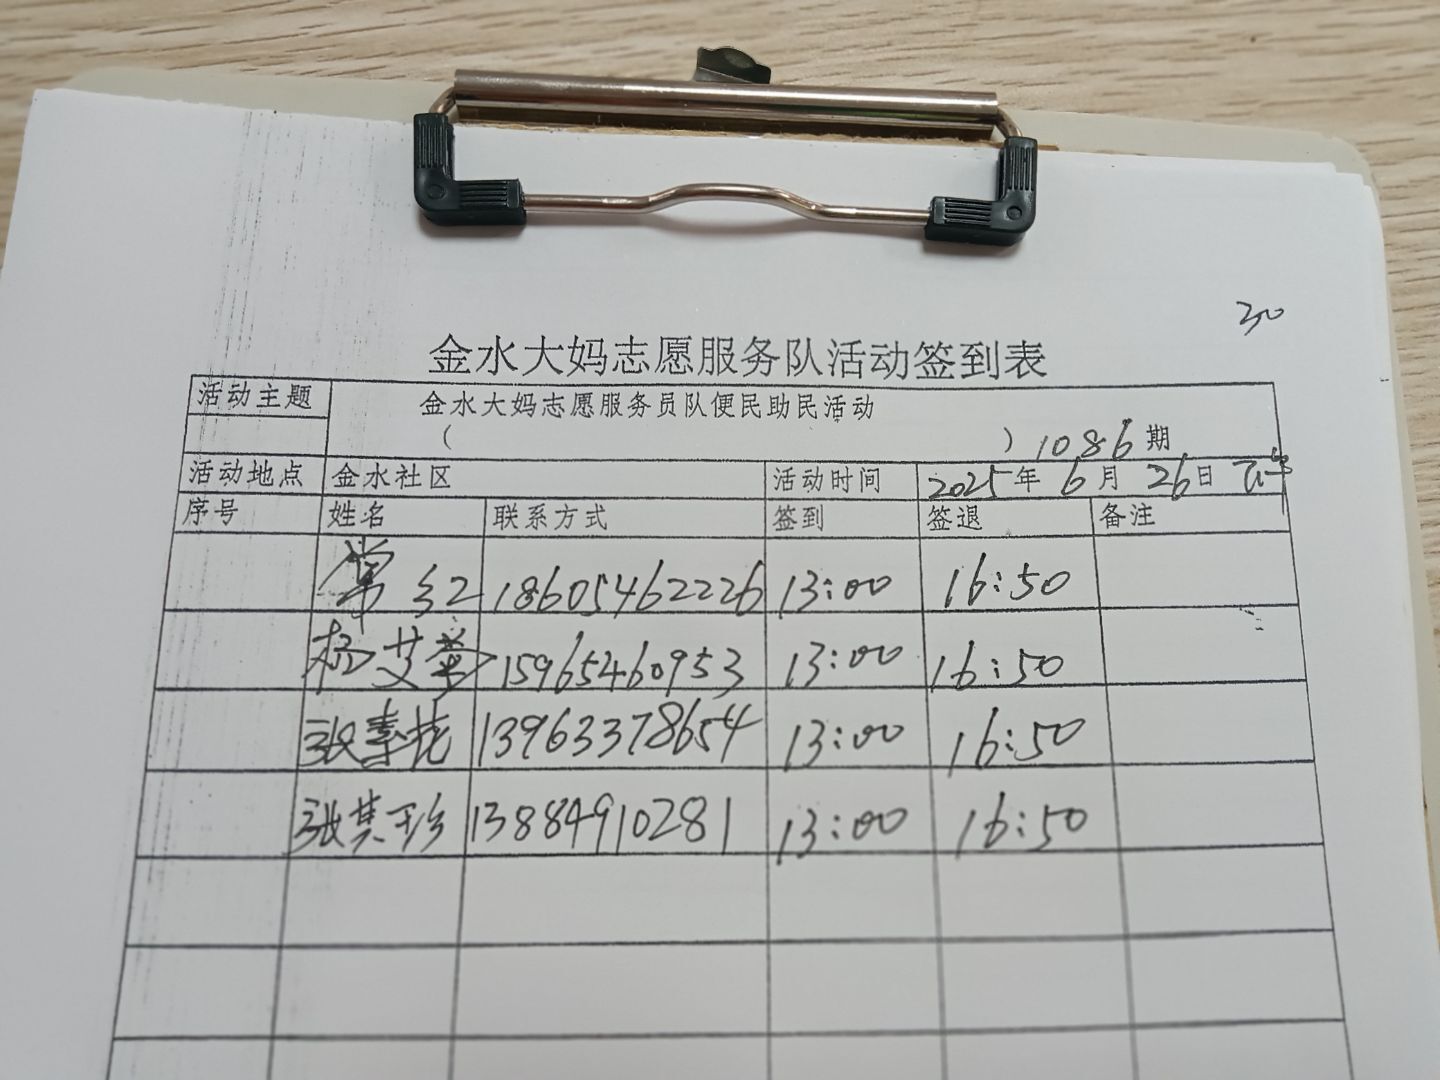 30
金水大妈志愿服务队活动签到表
活动主题 金水大妈志愿服务员队便民助民活动
( ) 1086期
活动地点 金水社区 活动时间 2025年 6月 26日 下午
序号 姓名 联系方式 签到 签退 备注
常红 18605462226 13:00 16:50
杨艾荣 15965460953 13:00 16:50
张素花 13963378654 13:00 16:50
张其珍 13884910281 13:00 16:50